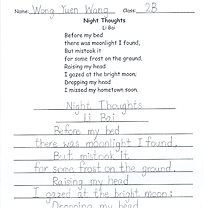 Name: Wong Yuen Wang Class: 2B
Night Thoughts
Li Bai
Before my bed
there was moonlight I found,
But mistook it
for some frost on the ground.
Raising my head
I gazed at the bright moon;
Dropping my head
I missed my hometown soon.
Night Thoughts
Li Bai
Before my bed
there was moonlight I found,
But mistook it
for some frost on the ground.
Raising my head
I gazed at the bright moon;
Dropping my head